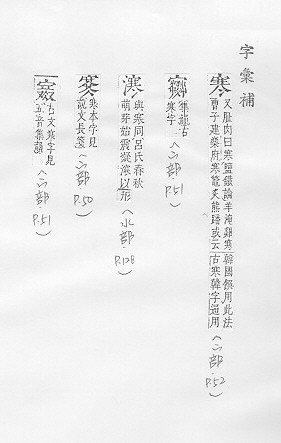 字彙補
寒
又胣肉曰寒鹽鐵論羊淹雞寒
曹子建樂府寒鼈炙熊蹯或云
韓國饌用此法
古寒韓字通用
(宀部, P.52)
集韻古
寒字
(宀部, P.51)
與寒同呂氏春秋
萌芽始震凝以形
(水部, P.128)
寒本字見
說文長箋
(宀部, P.50)
古文寒字見
五音集韻
(宀部, P.51)